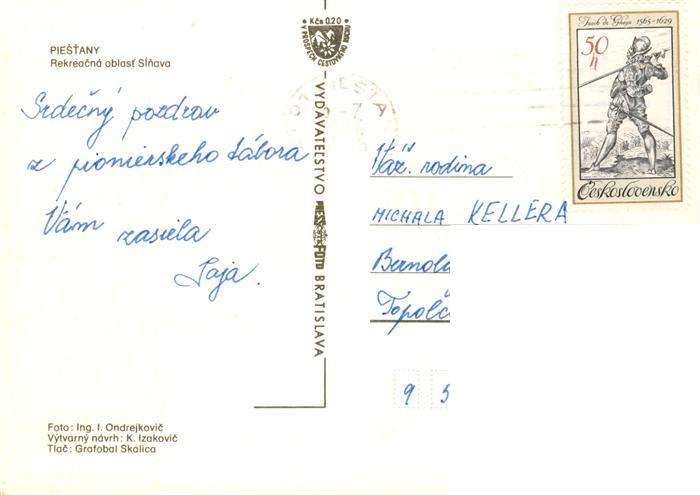 PIEŠŤANY
Rekreačná oblasť Sĺňava
Srdečný pozdrav
z pionierskeho tábora
Vám zasiela
Foto: Ing. I. Ondrejkovič
Výtvarný návrh: K. Izakovič
Tlač: Grafobal Skalica
Kčs 0,20
V PROSPECH CESTOVNÉHO RUCHU
VYDAVATEĽSTVO
BRATISLAVA
Jacob de Gheyn 1565-1629
50 h
Československo
Váž. rodina
MICHALA KELLERA
Bernol
Topoľč
9 5